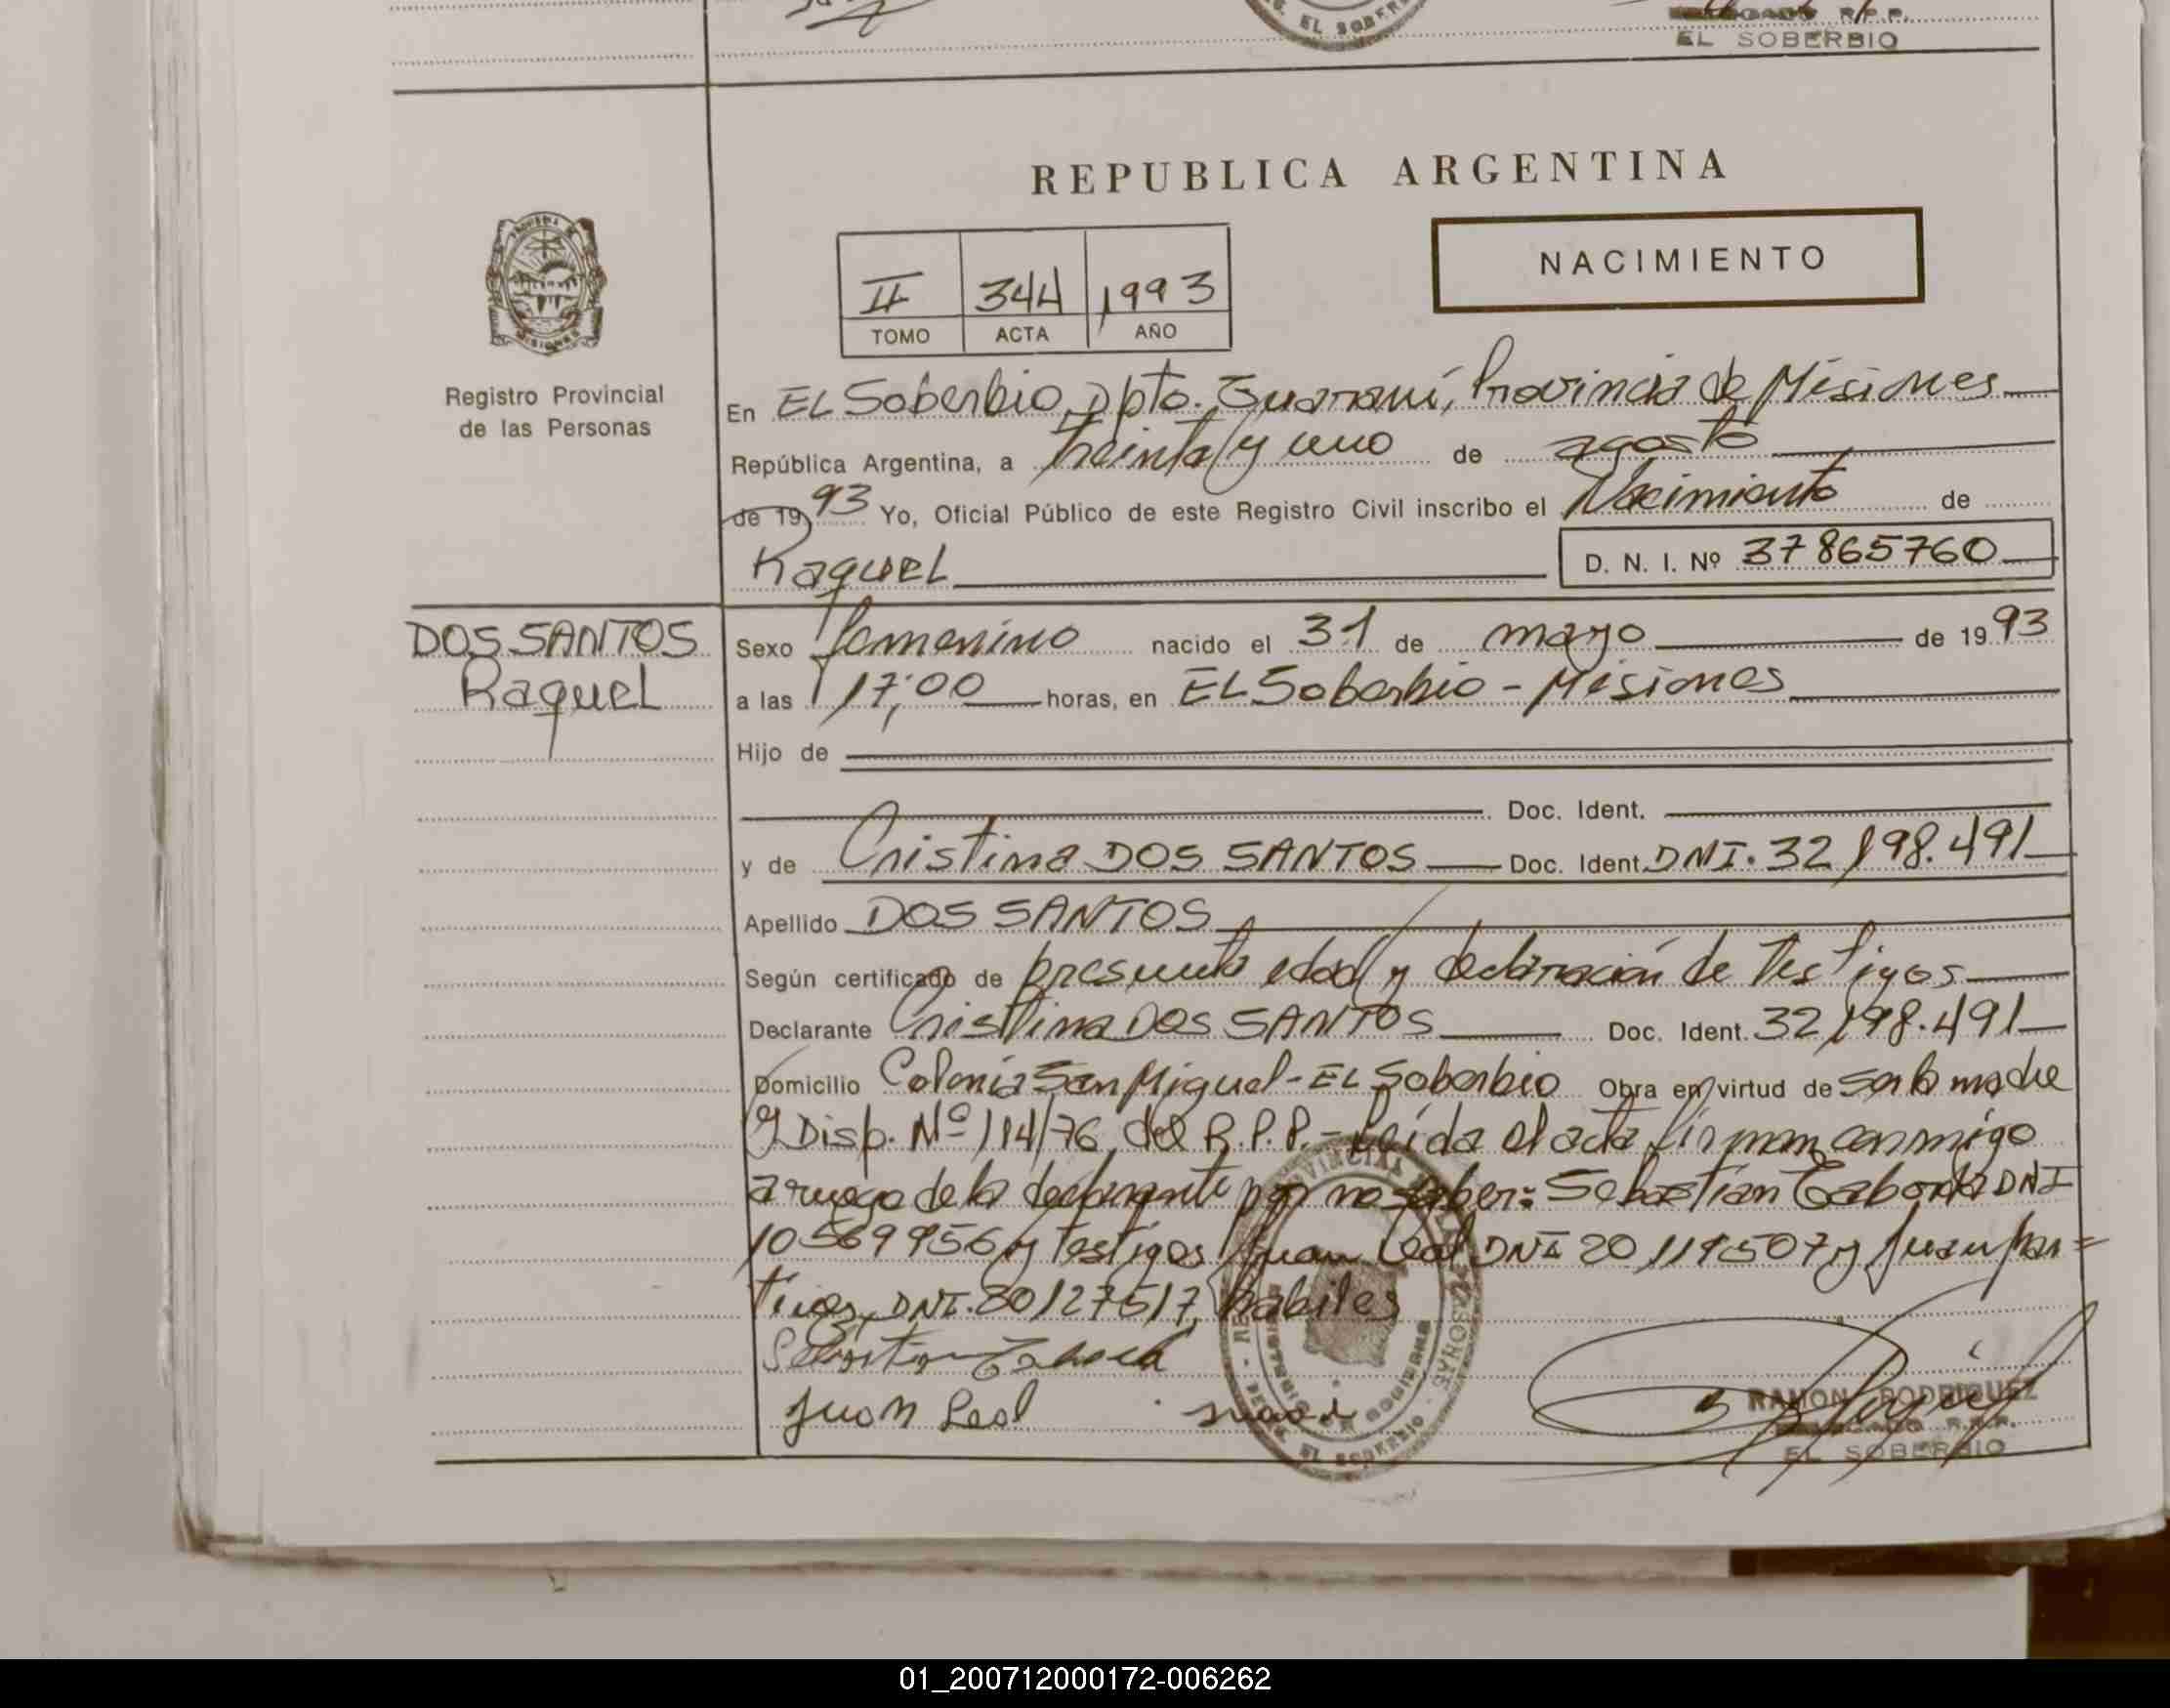 EL SOBERBIO
R.P.P.
EL SOBERBIO
REPUBLICA ARGENTINA
NACIMIENTO
II 344 1993
TOMO ACTA AÑO
MISIONES
Registro Provincial
de las Personas
En EL Soberbio, Dpto. Guaraní, Provincia de Misiones
República Argentina, a treinta y uno de agosto
de 1993 Yo, Oficial Público de este Registro Civil inscribo el Nacimiento de
Raquel D. N. I. Nº 37865760
DOS SANTOS
Raquel
Sexo femenino nacido el 31 de mayo de 1993
a las 17,00 horas, en EL Soberbio - Misiones
Hijo de
Doc. Ident.
y de Cristina DOS SANTOS Doc. Ident. DNI. 32198.491
Apellido DOS SANTOS
Según certificado de presunta edad y declaración de Testigos
Declarante Cristina DOS SANTOS Doc. Ident. 32198.491
Domicilio Colonia San Miguel - EL Soberbio Obra en virtud de ser la madre
y Disp. Nº 114/76 del R.P.P. - Leída el acta firman conmigo
a ruego de la declarante por no saber: Sebastian Taborda DNI
10569956 y testigos Juan Leal DNI 20119507 y Juan Mar=
tines DNI. 20127517, habiles
Juan Leal
RAMON RODRIGUEZ
R.P.P.
EL SOBERBIO
01_200712000172-006262